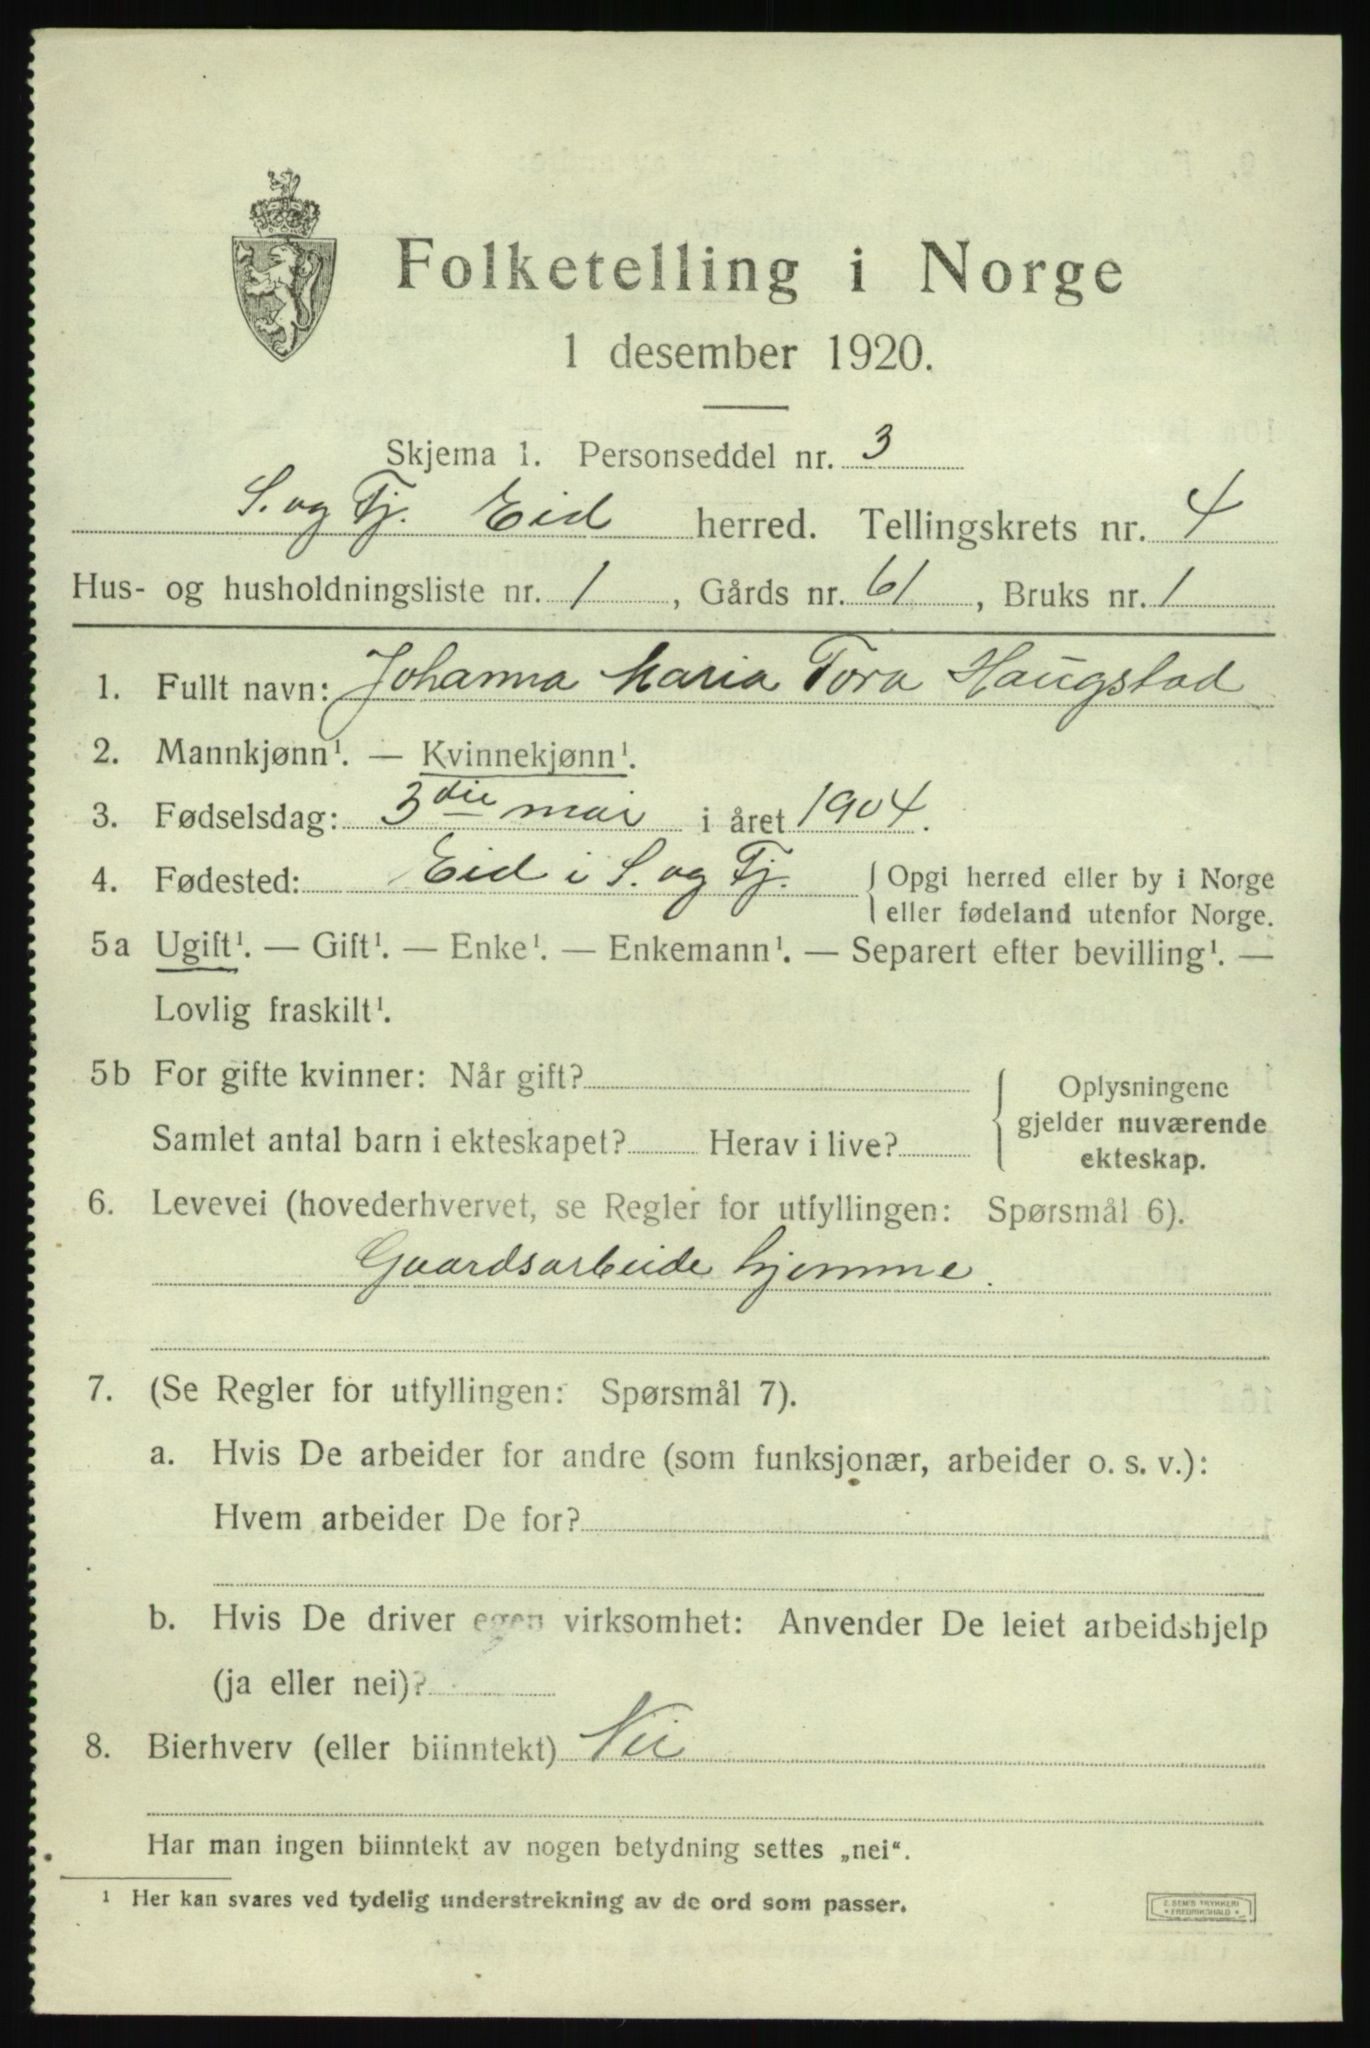 Folketelling i Norge
1 desember 1920.
Skjema 1. Personseddel nr. 3
S. og Fj. Eid herred. Tellingskrets nr. 4
Hus- og husholdningsliste nr. 1, Gårds nr. 61, Bruks nr. 1
1. Fullt navn: Johanna Maria Tora Haugstad
2. Mannkjønn¹. — Kvinnekjønn¹.
3. Fødselsdag: 3die mai i året 1904.
4. Fødested: Eid i S. og Fj. { Opgi herred eller by i Norge
eller fødeland utenfor Norge.
5a Ugift¹. — Gift¹. — Enke¹. — Enkemann¹. — Separert efter bevilling¹. —
Lovlig fraskilt¹.
5b For gifte kvinner: Når gift?
Samlet antal barn i ekteskapet? Herav i live?
{ Oplysningene
gjelder nuværende
ekteskap.
6. Levevei (hovederhvervet, se Regler for utfyllingen: Spørsmål 6).
Gaardsarbeide hjemme.
7. (Se Regler for utfyllingen: Spørsmål 7).
a. Hvis De arbeider for andre (som funksjonær, arbeider o. s. v.):
Hvem arbeider De for?
b. Hvis De driver egen virksomhet: Anvender De leiet arbeidshjelp
(ja eller nei)?
8. Bierhverv (eller biinntekt) Nei
Har man ingen biinntekt av nogen betydning settes „nei“.
¹ Her kan svares ved tydelig understrekning av de ord som passer.
E. SEM'S TRYKKERI
* FREDRIKSHALD *